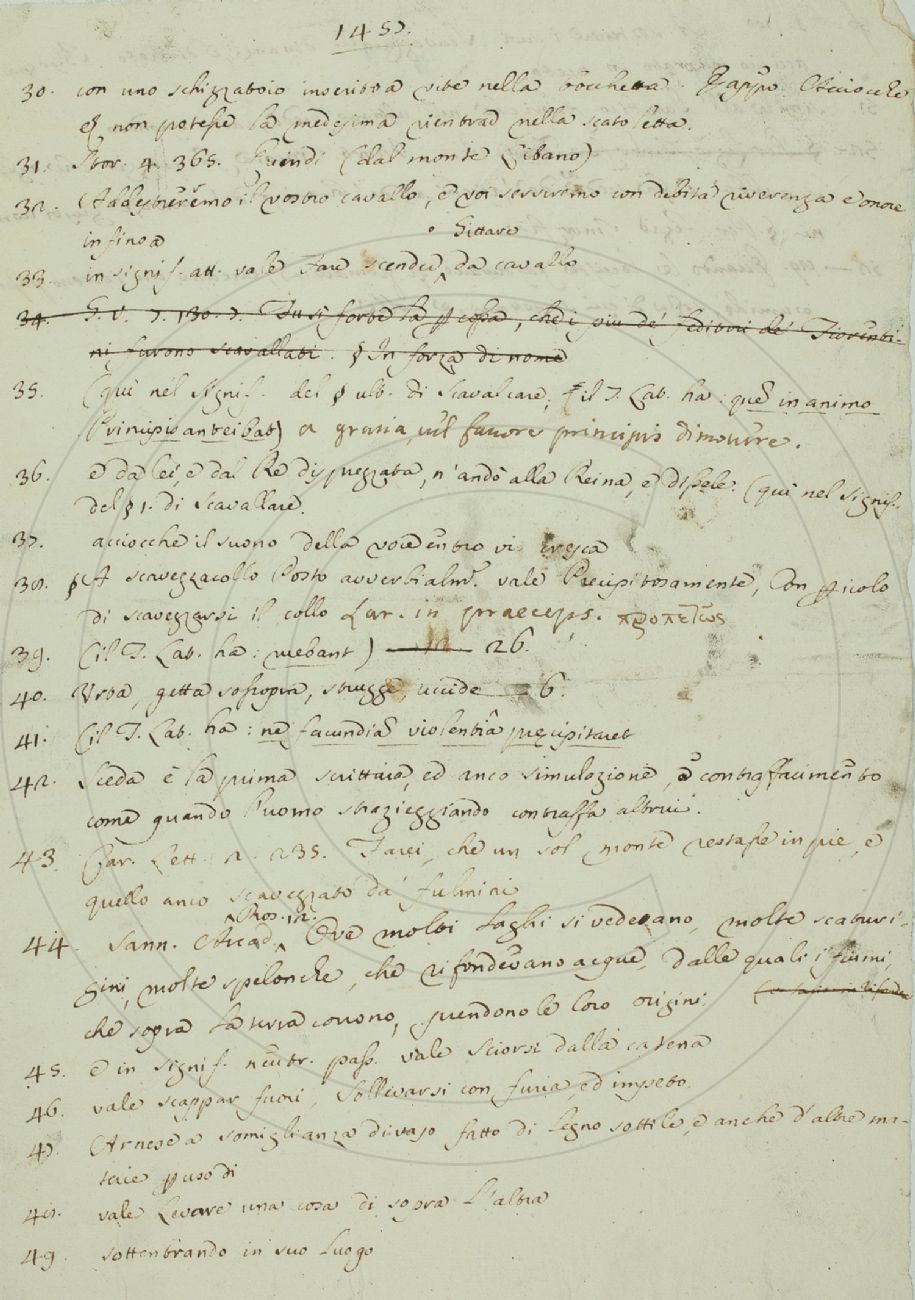 1457.
30. con uno schizzatoio inserito a vite nella bocchetta. Acciocchè
non potesse la medesima rientrar nella scatoletta.
31. Stor. 4. 365. Quindi (dal monte Libano)
32. (Addestreremo il vostro cavallo, e voi serviremo con debita riverenza e onore
infino a
° Gittare
33. in signif. att. vale Fare scender^ da cavallo
34. G. V. 7. 130. 7. Tu si forte la percossa, che i più de' feditori de' Fiorenti-
ni furono scavallati. § In forza di nome
35. (quì nel signif. del § ult. di Scavalcare; il T. Lat. ha: quem in animo
Principis anteibat) a grazia, vel favore principis dimovere.
36. e da lei, e dal Re disprezzata, n'andò alla Reina, e dissele: (quì nel signif.
del § 1. di Scavallare.
37. acciocchè il suono della voce entro vi cresca
38. § A scavezzacollo Posto avverbialm. vale Precipitosamente, Con pericolo
di scavezzarsi il collo Lat. in praeceps. προπετῶς
39. (il T. Lat. ha: ruebant) 26.
40. Urta, getta sossopra, strugge uccide 6.
41. (il T. Lat. ha: ne facundiae violentia praecipitaret
42. Sceda è la prima scrittura, ed anco simulazione, e contraffacimento
come quando l'uomo strazieggiando contraffa altrui.
43 Car. Lett. 2. 235. Farei, che un sol monte restasse in pie, e
quello anco scavezzato da' fulmini
^Pros. 12.
44. Sann. Arcad.^ Ove molti laghi si vedevano, molte scaturi-
gini, molte spelonche, che rifondevano acque, dalle quali i fiumi,
che sopra la terra corrono, prendono le loro origini.
45. e in signif. neutr. pass. vale Sciorsi dalla catena
46. vale scappar fuori, Sollevarsi con furia, ed impeto.
47. Arnese a somiglianza di vaso fatto di legno sottile, e anche d'altre ma-
terie per uso di
48. vale Levare una cosa di sopra l'altra
49. sottentrando in suo luogo